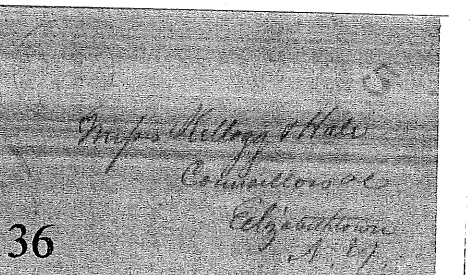 5
Messrs Kellogg & Hale
Councillors &c
Elizabethtown
N. Y.
36